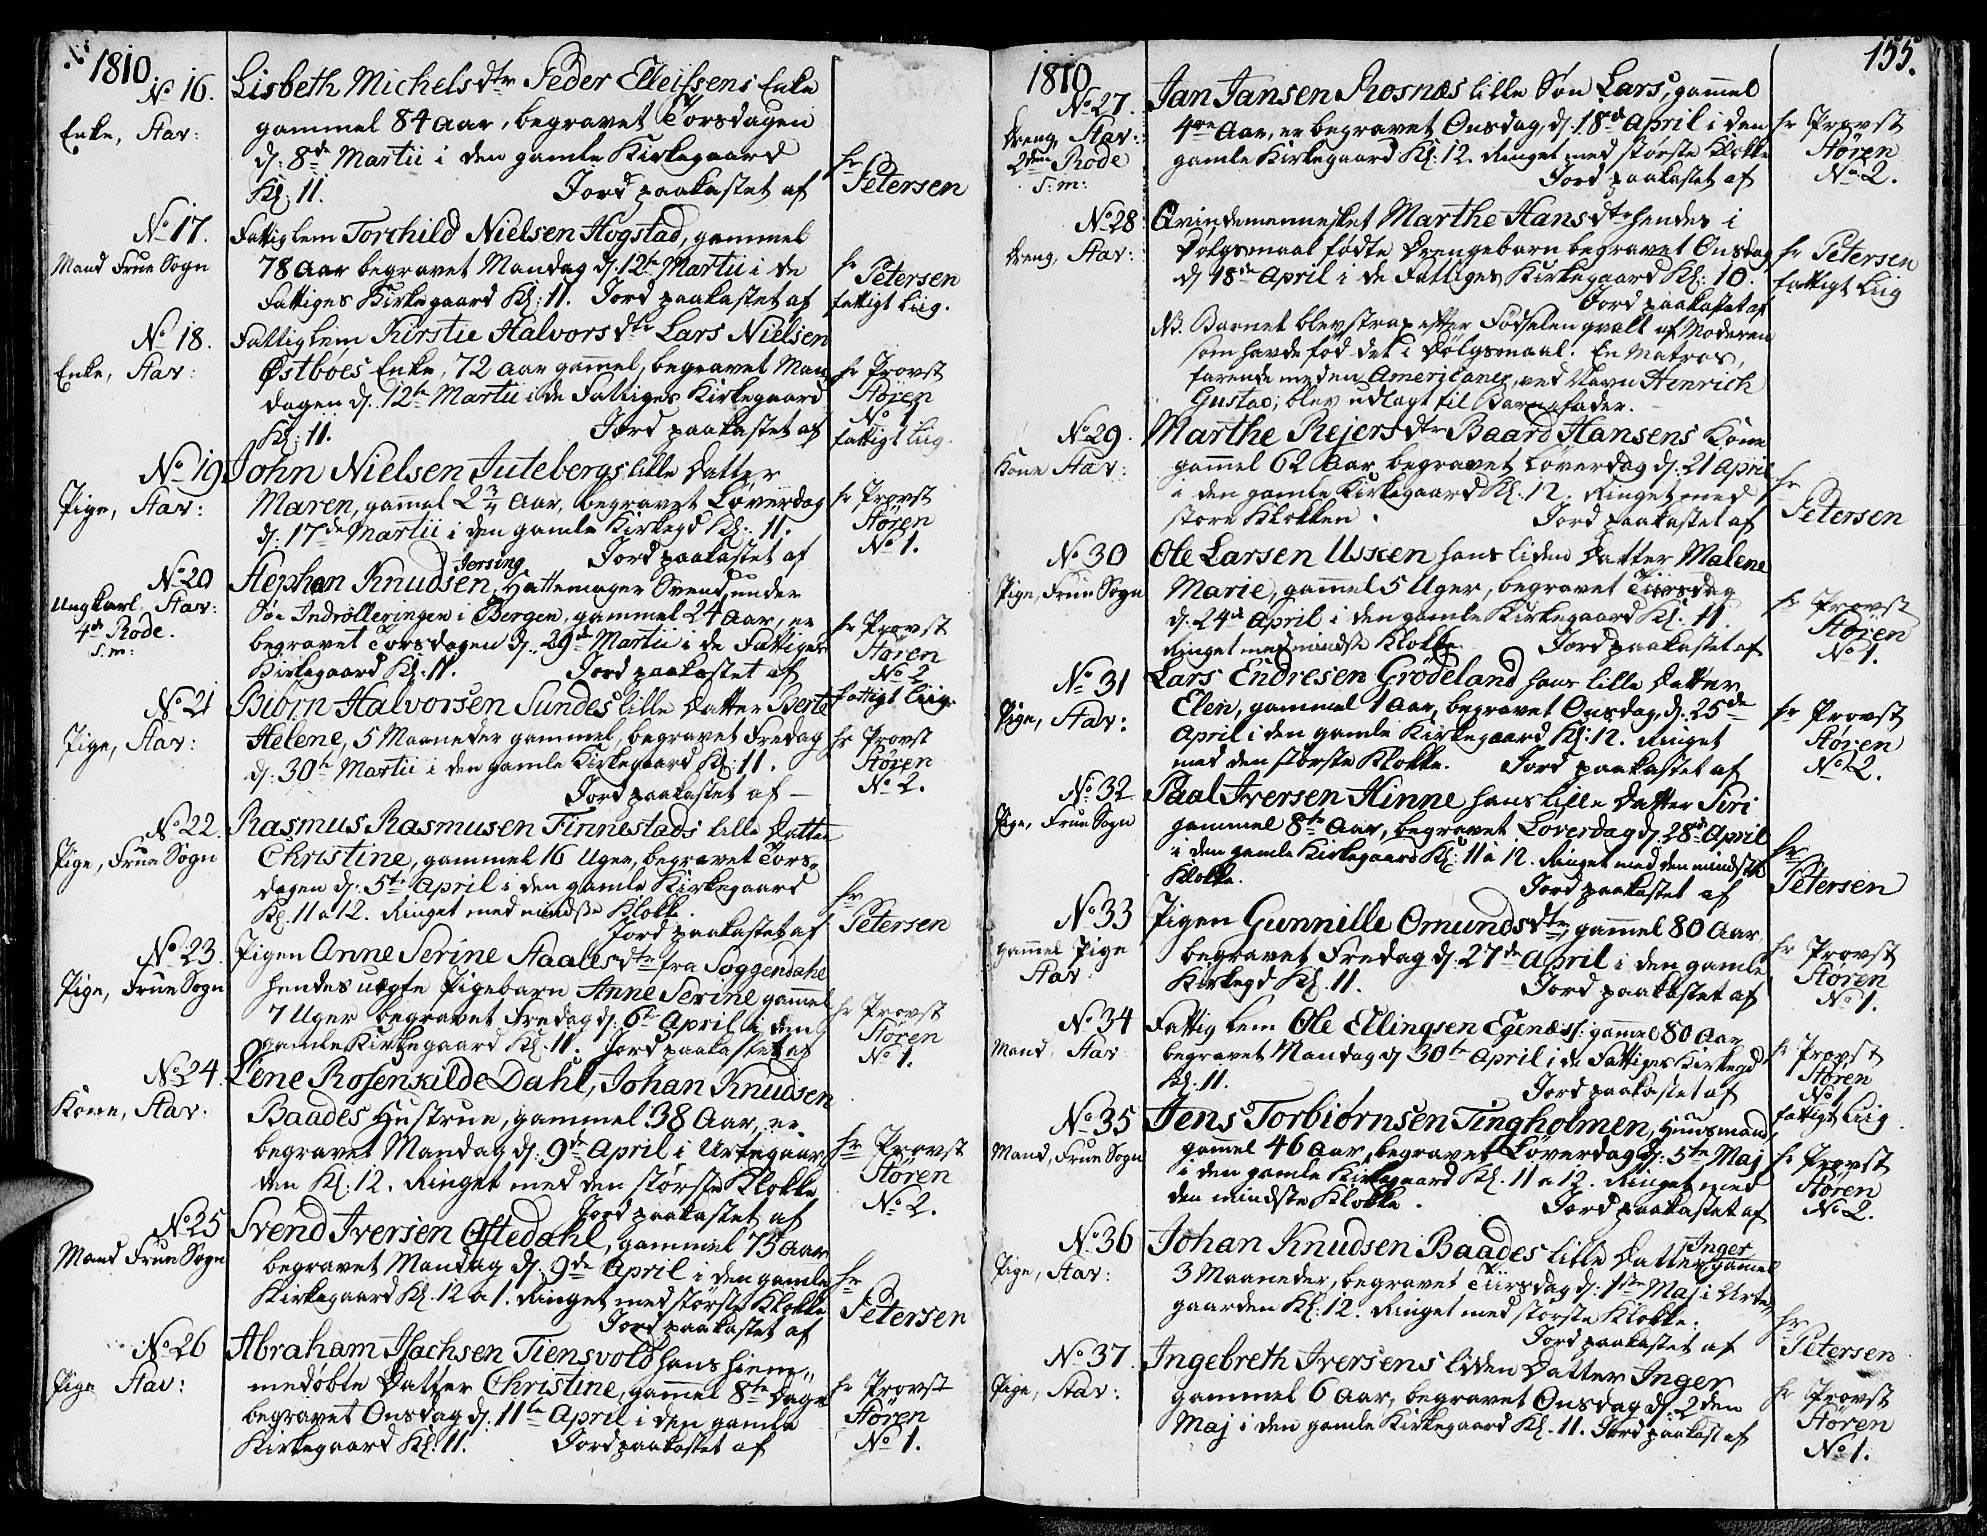 1810.
No 16.
Enke, Stav:
Lisbeth Michelsdtr Peder Elleifsens Enke
gammel 84 Aar, begravet Torsdagen
d: 8de Martii i den gamle Kirkegaard
Kl: 11. Jord paakastet af
hr Petersen
No 17.
Mand Frue Sogn
Fattiglem Torchild Nielsen Hogstad, gammel
78 Aar begravet Mandag d: 12te Martii i de
Fattiges Kirkegaard Kl: 11. Jord paakastet af
hr Petersen
fattigt Liig.
No 18.
Enke, Stav:
Fattiglem Kirstie Halvorsdtr Lars Nielsen
Østboes Enke, 72 Aar gamel, begravet Man
dagen d: 12te Martii i de Fattiges Kirkegaard
Kl: 11. Jord paakastet af
hr Provst
Støren
No 1.
fattigt Liig.
No 19
Pige, Stav:
John Nielsen Jutebergs lille Datter
Maren, gamel 2 3/4 Aar, begravet Løverdag
d: 17de Martii i den gamle Kirkegd Kl: 11.
Jord paakastet af
hr Provst
Støren
No 1.
No 20
Ung karl, Stav:
4de Rode.
S: m:
Jersing
Stephan Knudsen, Hattemager Svend, under
Søe Indrolleringen i Bergen, gammel 24 Aar, er
begravet Torsdagen d. 29de Martii i de Fattiges
Kirkegaard Kl. 11. Jord paakastet af
hr Provst
Støren
No 2
fattigt Liig.
No 21
Pige, Stav:
Biørn Halvorsen Sundes lille Datter Berte
Helene, 5 Maaneder gammel, begravet Fredag
d: 30te Martii i den gamle Kirkegaard Kl: 11.
Jord paakastet af
hr Provst
Støren
No 2.
No 22.
Pige, Frue Sogn
Rasmus Rasmusen Finnestads lille Datter
Christine, gammel 16 Uger, begravet Tors-
dagen d: 5te April i den gamle Kirkegaard
Kl. 11 a 12. Ringet med mindste Klokke.
Jord paakastet af
hr Petersen
No 23.
Pige, Frue Sogn
Pigen Anne Serine Staalesdtr fra Soggendahl
hendes uægte Pigebarn Anne Serine gamel
7 Uger begravet Fredag d: 6te April i den
gamle Kirkegaard Kl. 11. Jord paakastet af
hr Provst
Støren
No 1.
No 24.
Kone, Stav:
Lene Rosenkilde Dahl, Johan Knudsen
Baades Hustrue, gammel 38 Aar, er
begravet Mandag d: 9de April i Urtegaar-
den Kl: 12. Ringet med den største Klokke
Jord paakastet af
hr Provst
Støren
No 2.
No 25
Mand Frue Sogn
Svend Iversen Oftedahl, gammel 75 Aar
begravet Mandag d: 9de April i den gamle
Kirkegaard Kl. 12 a 1. Ringet med største Klokke
Jord paakastet af
hr Petersen
No 26
Pige Stav:
Abraham Isachsen Tiensvold hans hiem-
medøbte Datter Christine, gamel 8te Dage
begravet Onsdag d: 11te April i den gamle
Kirkegaard Kl: 11. Jord paakastet af
hr Provst
Støren
No 1.
155.
1810
No 27.
Dreng, Stav:
2den Rode
S: m:
Jan Jansen Rosnæs lille Søn Lars, gammel
4re Aar, er begravet Onsdag, d: 18de April i den
gamle Kirkegaard Kl: 12. Ringet med største Klokke
Jord paakastet af
hr Provst
Støren
No 2.
No 28
Dreng, Stav:
Qvindemennesket Marthe Hansdtr hendes i
Dølgsmaal fødte Drengebarn begravet Onsdag
d: 18de April i de Fattiges Kirkegaard Kl: 10.
Jord paakastet af
hr Petersen
fattigt Liig
NB. Barnet blev strax efter Fødselen qvalt af Moderen
som havde fød det i Dølgsmaal. En Matros,
farende med en Americaner, ved Navn Henrich
Gustav, blev udlagt til Barnefader.
No 29.
Kone Stav:
Marthe Rejersdtr Baard Hansens Kone
gamel 62 Aar, begravet Løverdag d: 21 April
i den gamle Kirkegaard Kl: 12. Ringet med
store Klokken. Jord paakastet af
hr Petersen
No 30
Pige, Frue Sogn
Ole Larsen Usken hans liden Datter Malene
Marie, gamel 5 Uger, begravet Tiirsdag
d: 24de April i den gamle Kirkegaard Kl: 11.
Ringet med mindste Klokke. Jord paakastet af
hr Provst
Støren
No 1.
No 31
Pige, Stav:
Lars Endresen Grödeland hans lille Datter
Elen, gammel 1 Aar, begravet Onsdag, d: 25de
April i den gamle Kirkegaard Kl: 12. Ringet
med den største Klokke. Jord paakastet af
hr Provst
Støren
No 2.
No 32
Pige, Frue Sogn
Paal Iversen Hinne hans lille Datter Siri
gammel 8te Aar, begravet Løverdag d: 28de April
i den gamle Kirkegaard Kl: 11 a 12. Ringet med den mindste
Klokke. Jord paakastet af
hr Petersen
No 33
gamel Pige
Stav
Pigen Gunnille Omundsdtr, gamel 80 Aar
begravet Fredag d: 27de April i den gamle
Kirkegd Kl. 11. Jord paakastet af
hr Provst
Støren
No 1.
No 34
Mand, Stav:
Fattiglem Ole Ellingsen Egenæs, gamel 80 Aar
begravet Mandag d: 30te April i de Fattiges Kirkegd
Kl: 11. Jord paakastet af
hr Provst
Støren
No 1
fattigt Liig.
No 35
Mand, Frue Sogn
Jens Torbiörnsen Tingholmen, Huusmand,
gamel 46 Aar, begravet Løverdag d: 5te Maj
i den gamle Kirkegaard Kl. 11 a 12. Ringet med
den mindste Klokke. Jord paakastet af
hr Provst
Støren
No 2.
No 36
Pige, Stav:
Johan Knudsen Baades lille Datter Inger gamel
3 Maaneder, begravet Tiirsdag d: 1ste Maj i Urte-
gaarden Kl: 12. Ringet med største Klokke.
Jord paakastet af
hr Petersen
No 37.
Pige, Stav:
Ingebreth Iversens liden Datter Inger
gammel 6 Aar, begravet Onsdag d: 2den
Maj i den gamle Kirkegaard Kl. 11. Jord paakast af
hr Provst
Støren
No 1.